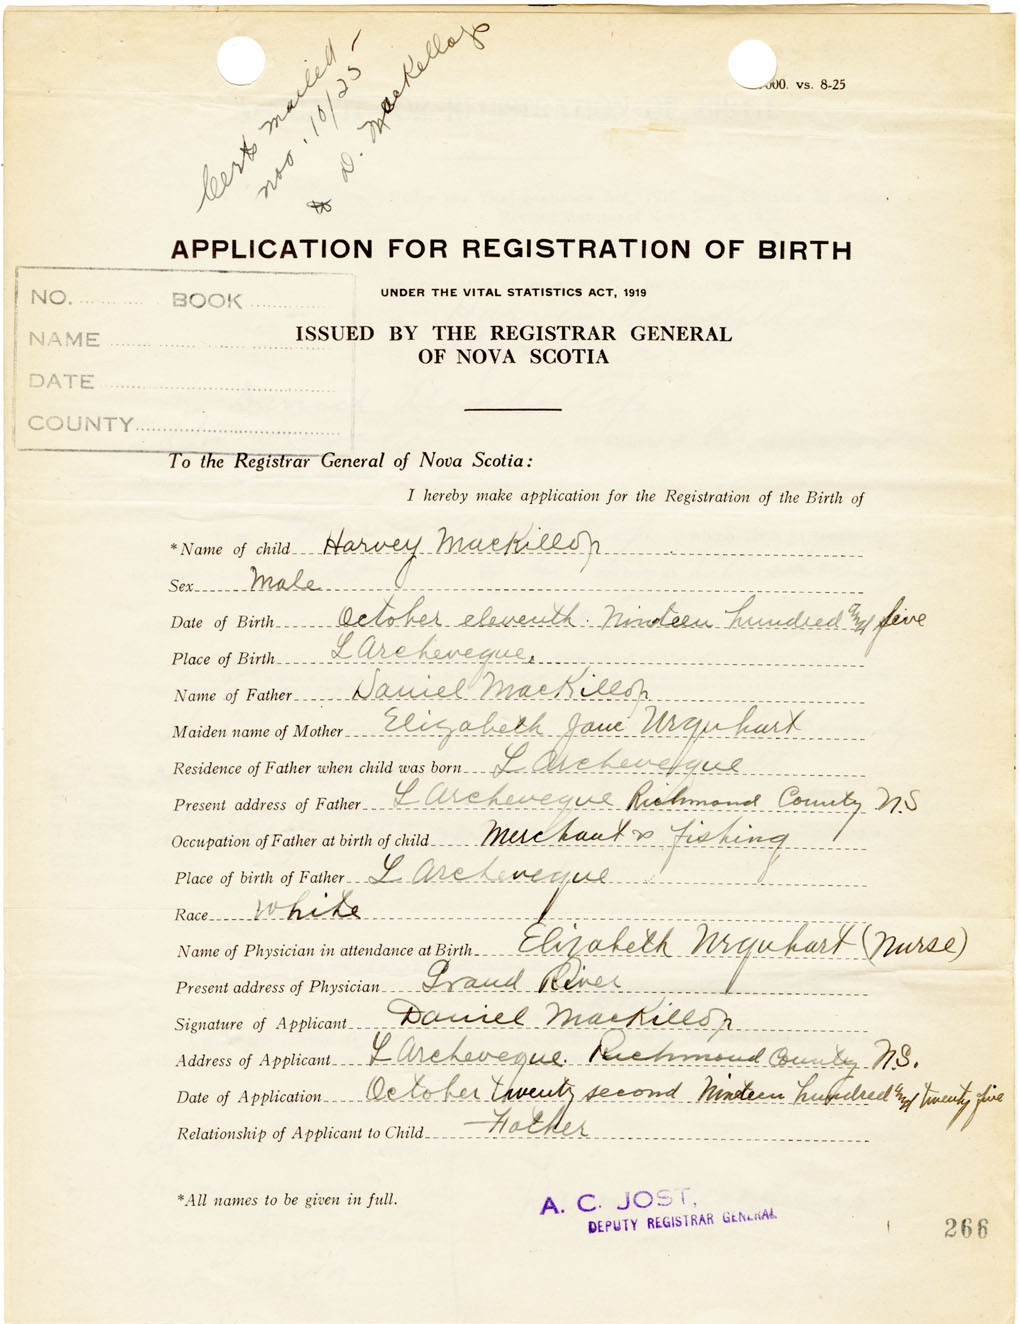 Certs mailed -
Nov. 10/25
to D. MacKillop
000. vs. 8-25
APPLICATION FOR REGISTRATION OF BIRTH
UNDER THE VITAL STATISTICS ACT, 1919
ISSUED BY THE REGISTRAR GENERAL
OF NOVA SCOTIA
NO. BOOK
NAME
DATE
COUNTY
To the Registrar General of Nova Scotia:
I hereby make application for the Registration of the Birth of
*Name of child Harvey MacKillop
Sex Male
Date of Birth October eleventh. Nineteen hundred and five
Place of Birth L Archeveque.
Name of Father Daniel MacKillop
Maiden name of Mother Elizabeth Jane Urquhart
Residence of Father when child was born L Archeveque
Present address of Father L Archeveque Richmond County N.S
Occupation of Father at birth of child Merchant & fishing
Place of birth of Father L Archeveque
Race White
Name of Physician in attendance at Birth Elizabeth Urquhart (Nurse)
Present address of Physician Grand River
Signature of Applicant Daniel MacKillop
Address of Applicant L Archeveque. Richmond County N.S.
Date of Application October twenty second Nineteen hundred and twenty five
Relationship of Applicant to Child Father
*All names to be given in full.
A. C. JOST,
DEPUTY REGISTRAR GENERAL
266